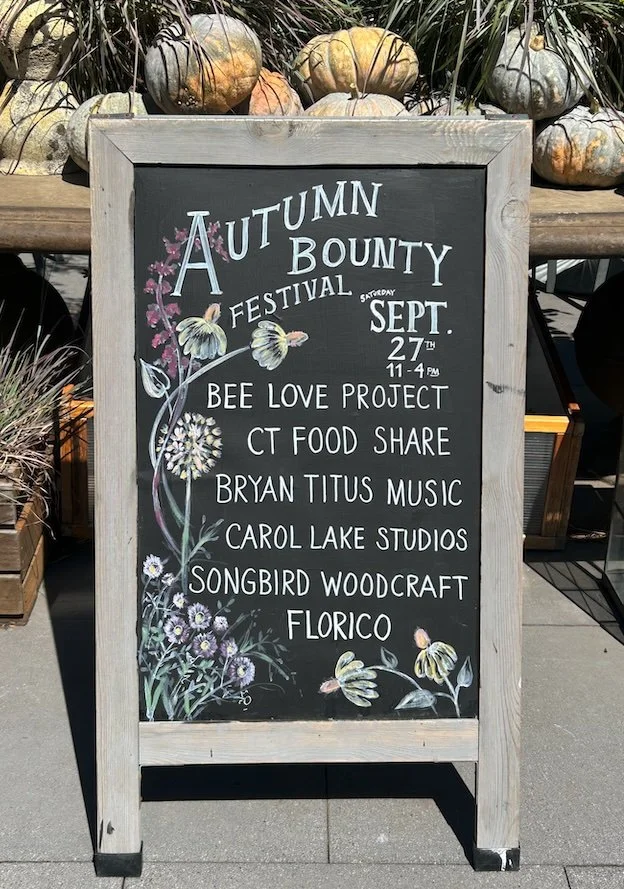 AUTUMN
BOUNTY
FESTIVAL
SATURDAY
SEPT.
27TH
11-4PM
BEE LOVE PROJECT
CT FOOD SHARE
BRYAN TITUS MUSIC
CAROL LAKE STUDIOS
SONGBIRD WOODCRAFT
FLORICO